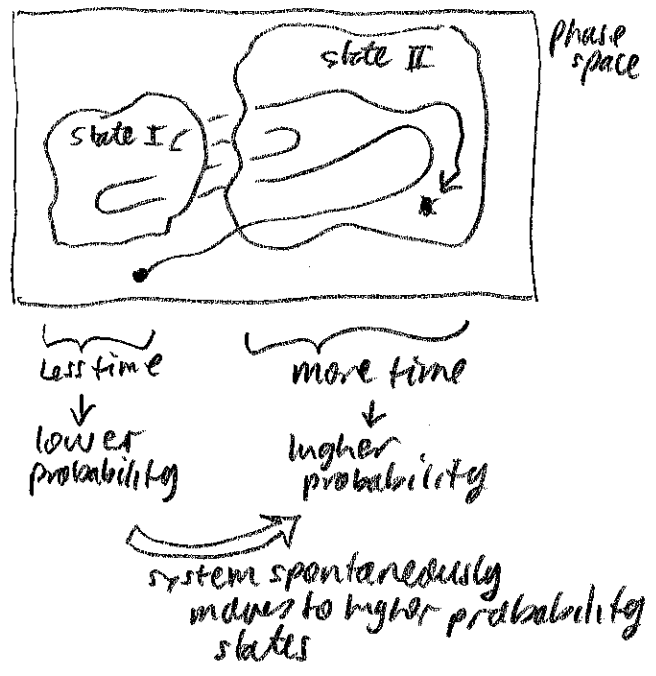 phase
space
state II
state I
Less time
more time
lower
probability
higher
probability
system spontaneously
moves to higher probability
states